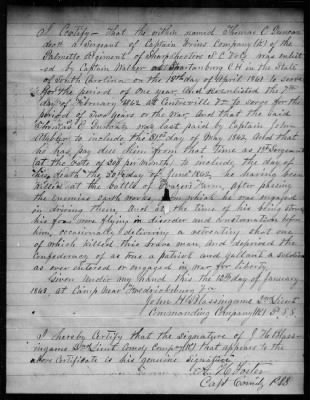 I Certify - that the within named Thomas C. Duncan
dec'd a Sergeant of Captain Company (K) of the
Palmetto Regiment of Sharpshooters S.C. Vols was enlist-
ed by Captain Walker at Spartanburg C.H. in the State
of South Carolina on the 13th day of April 1861 to serve
for the period of one year, And Reenlisted the 7th
day of February 1862 at Centreville Va to serve for the
period of two years or the war, And that the said
Thomas C. Duncan was last paid by Captain John
to include the 31st day of May 1862 And that he
has pay due him from that time as 1st Sergeant
at the rate of 20$ per month, to include the day of
his death the 30th day of June 1862, he having been
killed at the battle of Frazier's Farm, after passing
the enemies earth works, from which he was engaged
in driving them. And at the time of his being struck
his foes were flying in disorder and consternation before
him, occasionally delivering a retreating shot one
of which killed this brave man and deprived the
Confederacy of as true a patriot and gallant a soldier
as ever entered or engaged in war for liberty.
Given under my hand this the 12th day of January
1863, at Camp Near Fredricksburg Va
John H Blassingame 2nd Lieut
Commanding Company (K) P.S.S.
I hereby Certify that the signature of J H Blass-
ingame 2nd Lieut Comdg Company (K) that appears to the
above Certificate is his genuine signature
Foster
Capt Comdg P.S.S.